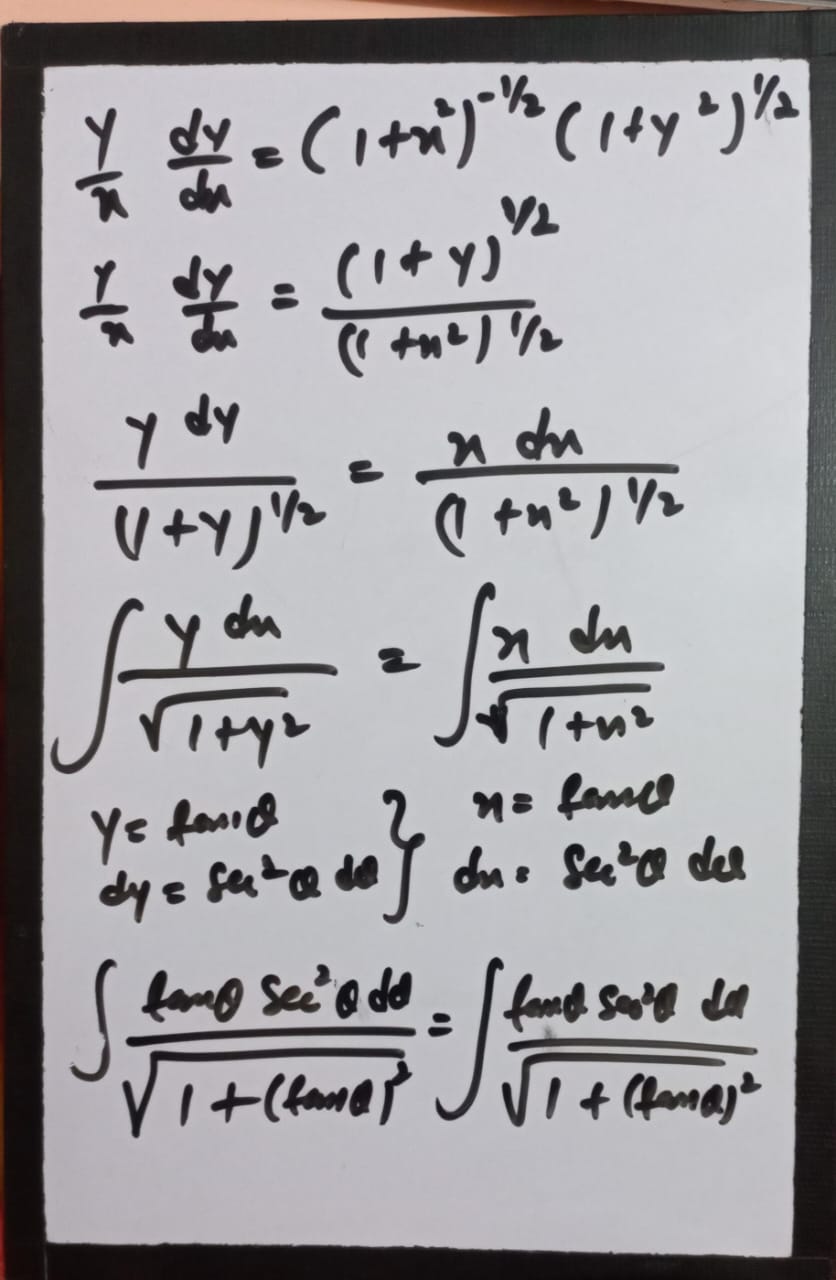 y/x dy/dx = (1+x²)^-1/2 (1+y²)^1/2
y/x dy/dx = (1+y)^1/2 / (1+x²)^1/2
y dy / (1+y)^1/2 = x dx / (1+x²)^1/2
∫ y dx / √1+y² = ∫ x dx / √1+x²
y = tanθ } x = tanθ
dy = sec²θ dθ } dx = sec²θ dθ
∫ tanθ sec²θ dθ / √1+(tanθ)² = ∫ tanθ sec²θ dθ / √1+(tanθ)²